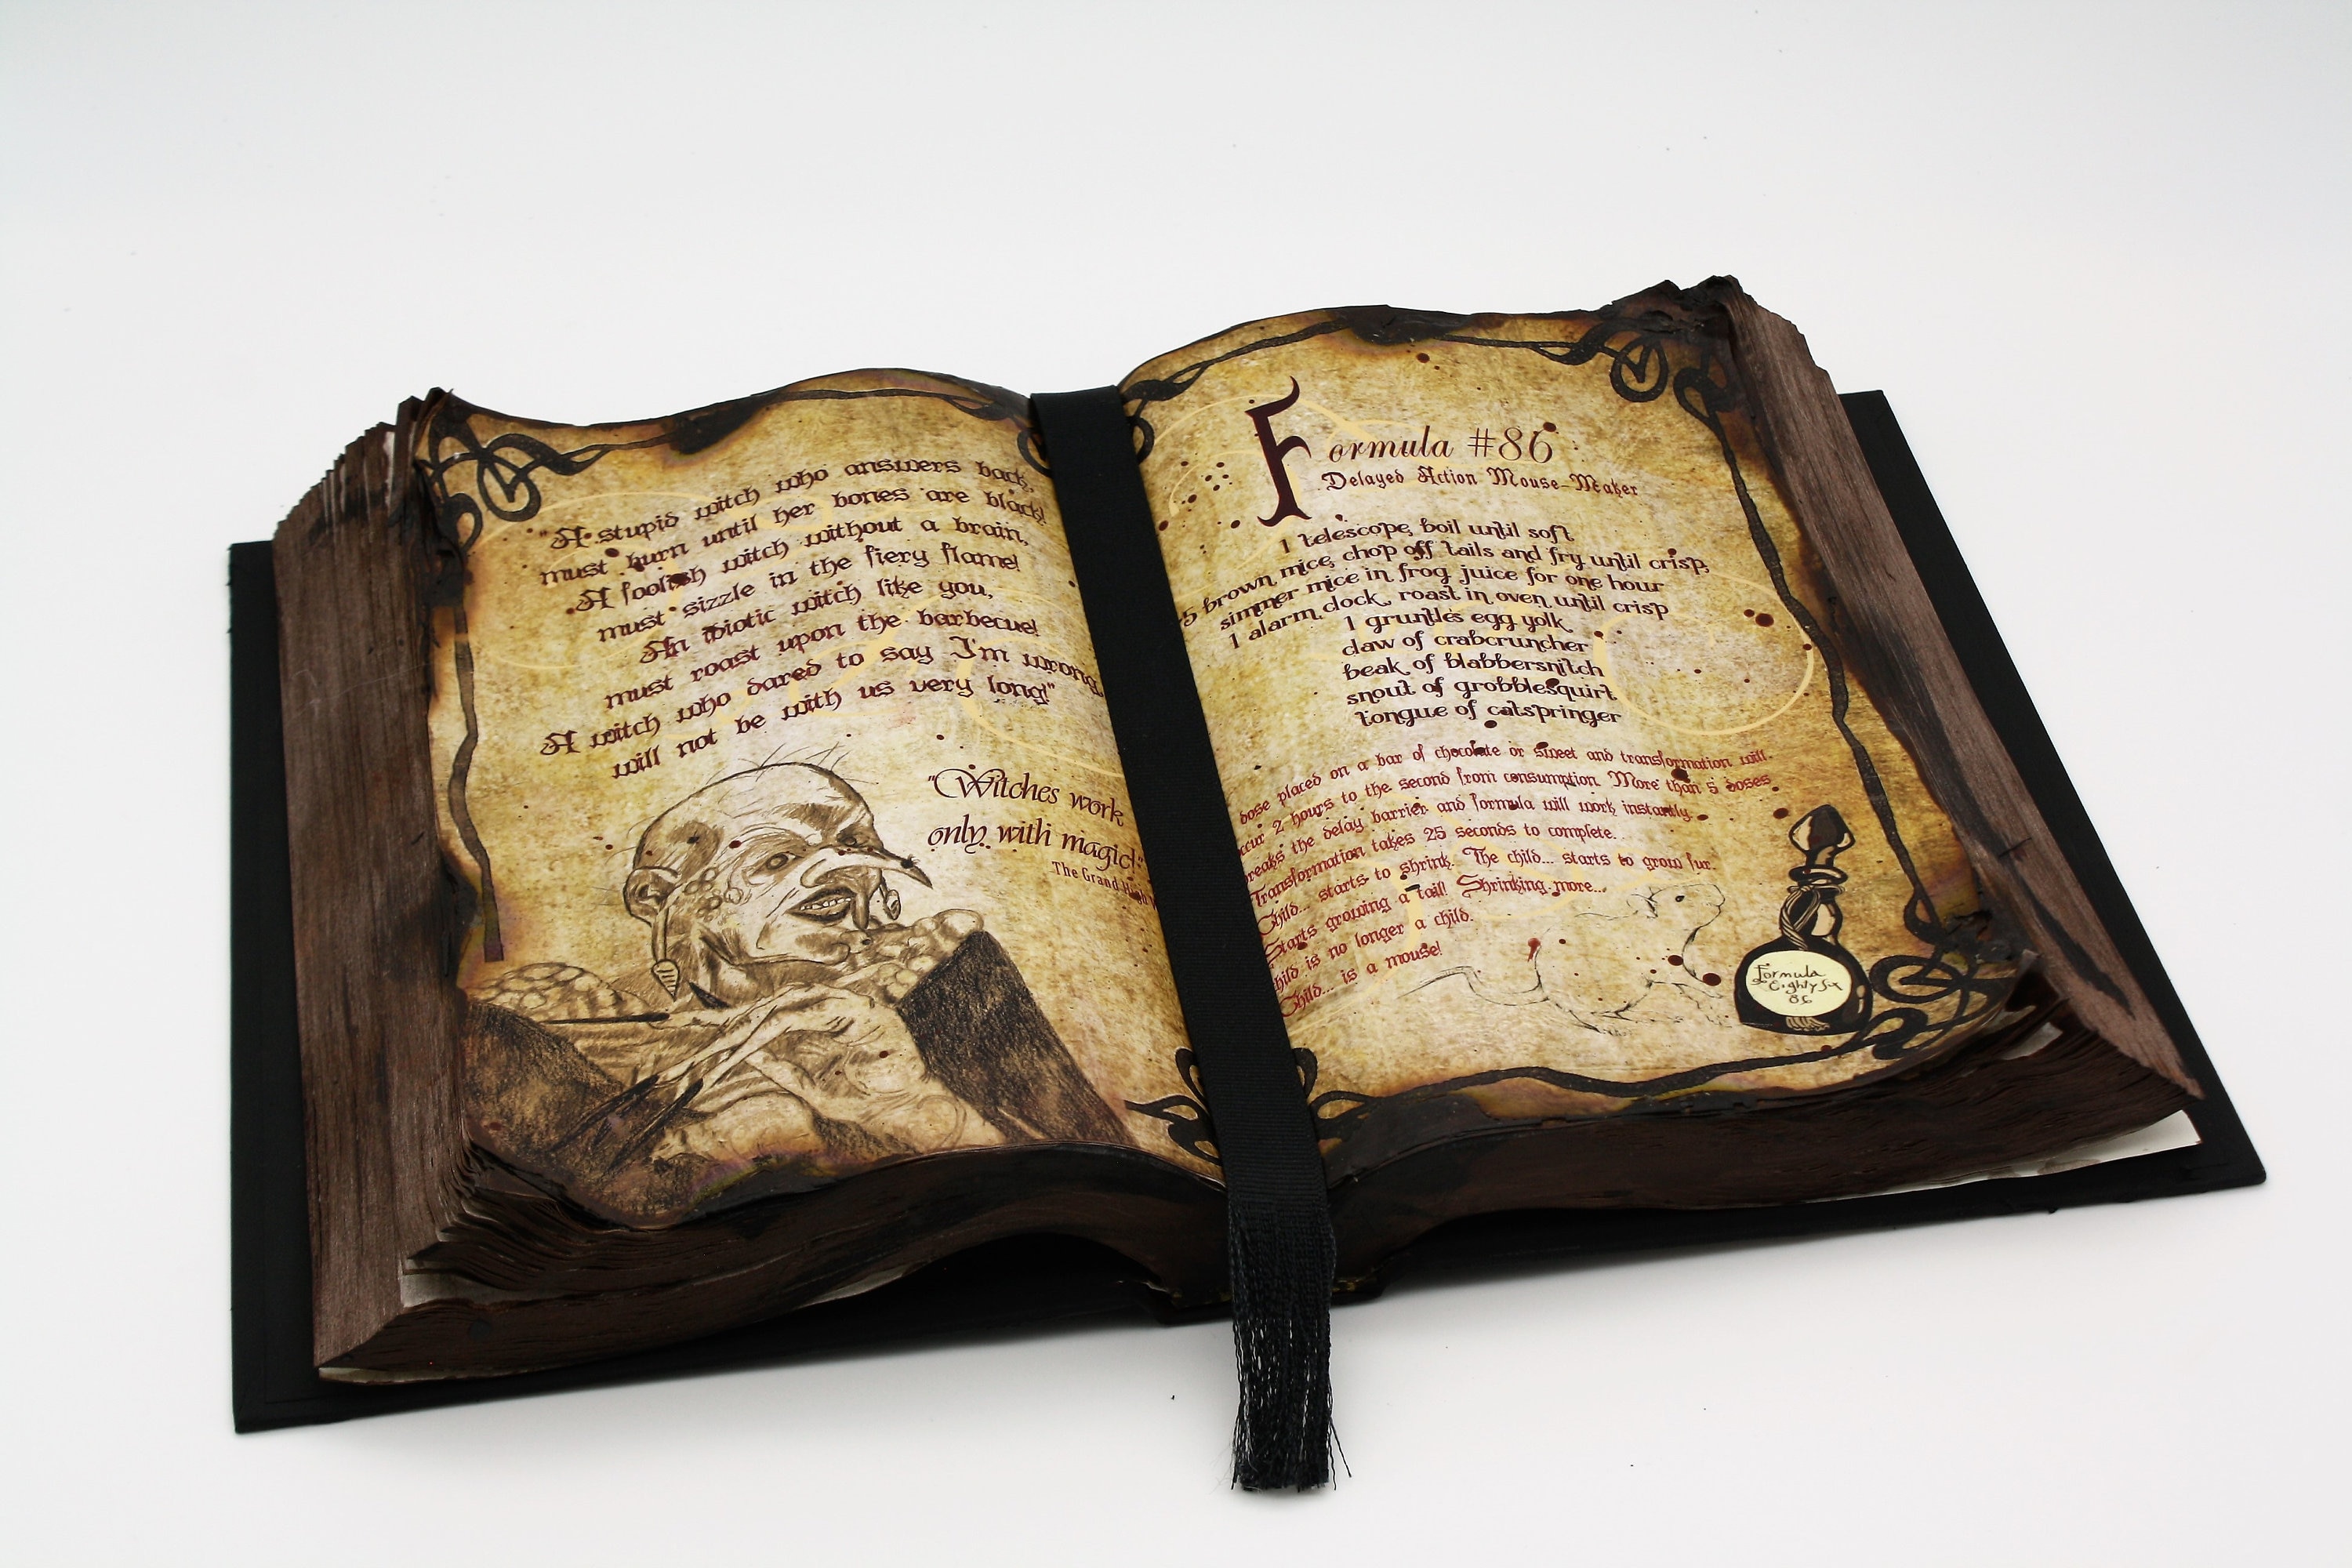 "A stupid witch who answers back,
must burn until her bones are black!
A foolish witch without a brain,
must sizzle in the fiery flame!
An idiotic witch like you,
must roast upon the barbecue!
A witch who dared to say I'm wrong,
will not be with us very long!"
"Witches work
only with magic!"
The Grand High
Formula #86
Delayed Action Mouse-Maker
1 telescope, boil until soft
5 brown mice, chop off tails and fry until crisp,
simmer mice in frog juice for one hour
1 alarm clock, roast in oven until crisp
1 gruntle's egg yolk
claw of crabcruncher
beak of blabbersnitch
snout of grobblesquirt
tongue of catspringer
dose placed on a bar of chocolate or sweet and transformation will
2 hours to the second from consumption. More than 5 doses
the delay barrier and formula will work instantly.
Transformation takes 25 seconds to complete.
Child... starts to shrink. The child... starts to grow fur.
Starts growing a tail! Shrinking more...
is no longer a child.
Child... is a mouse!
Formula
Eighty Six
86